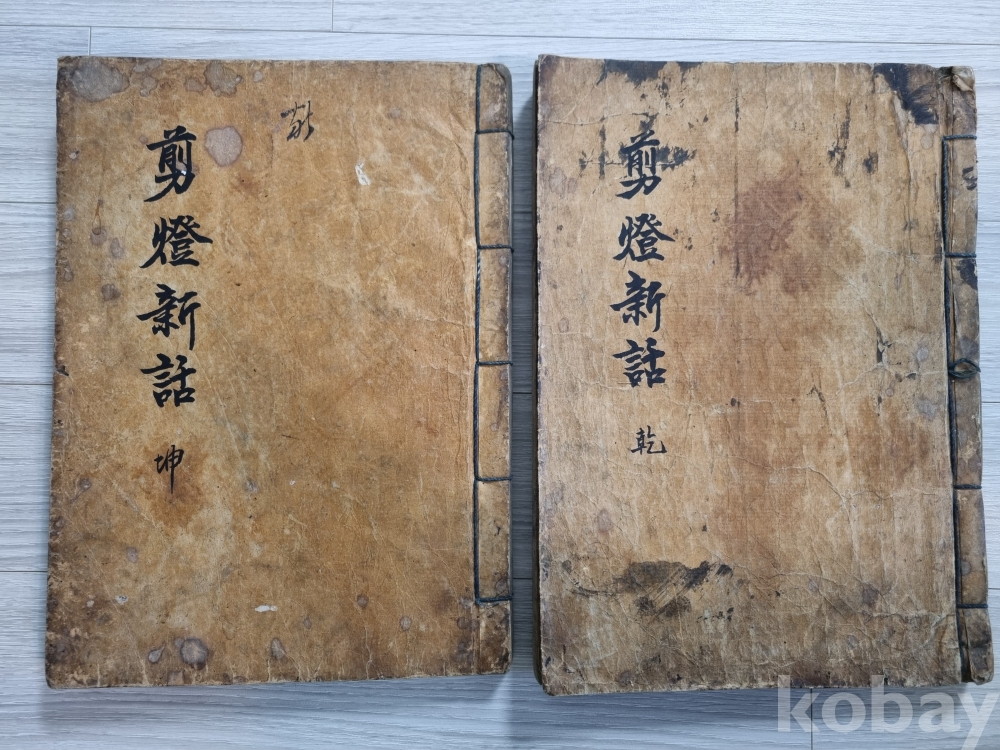 剪燈新話
乾
剪燈新話
坤
kobay